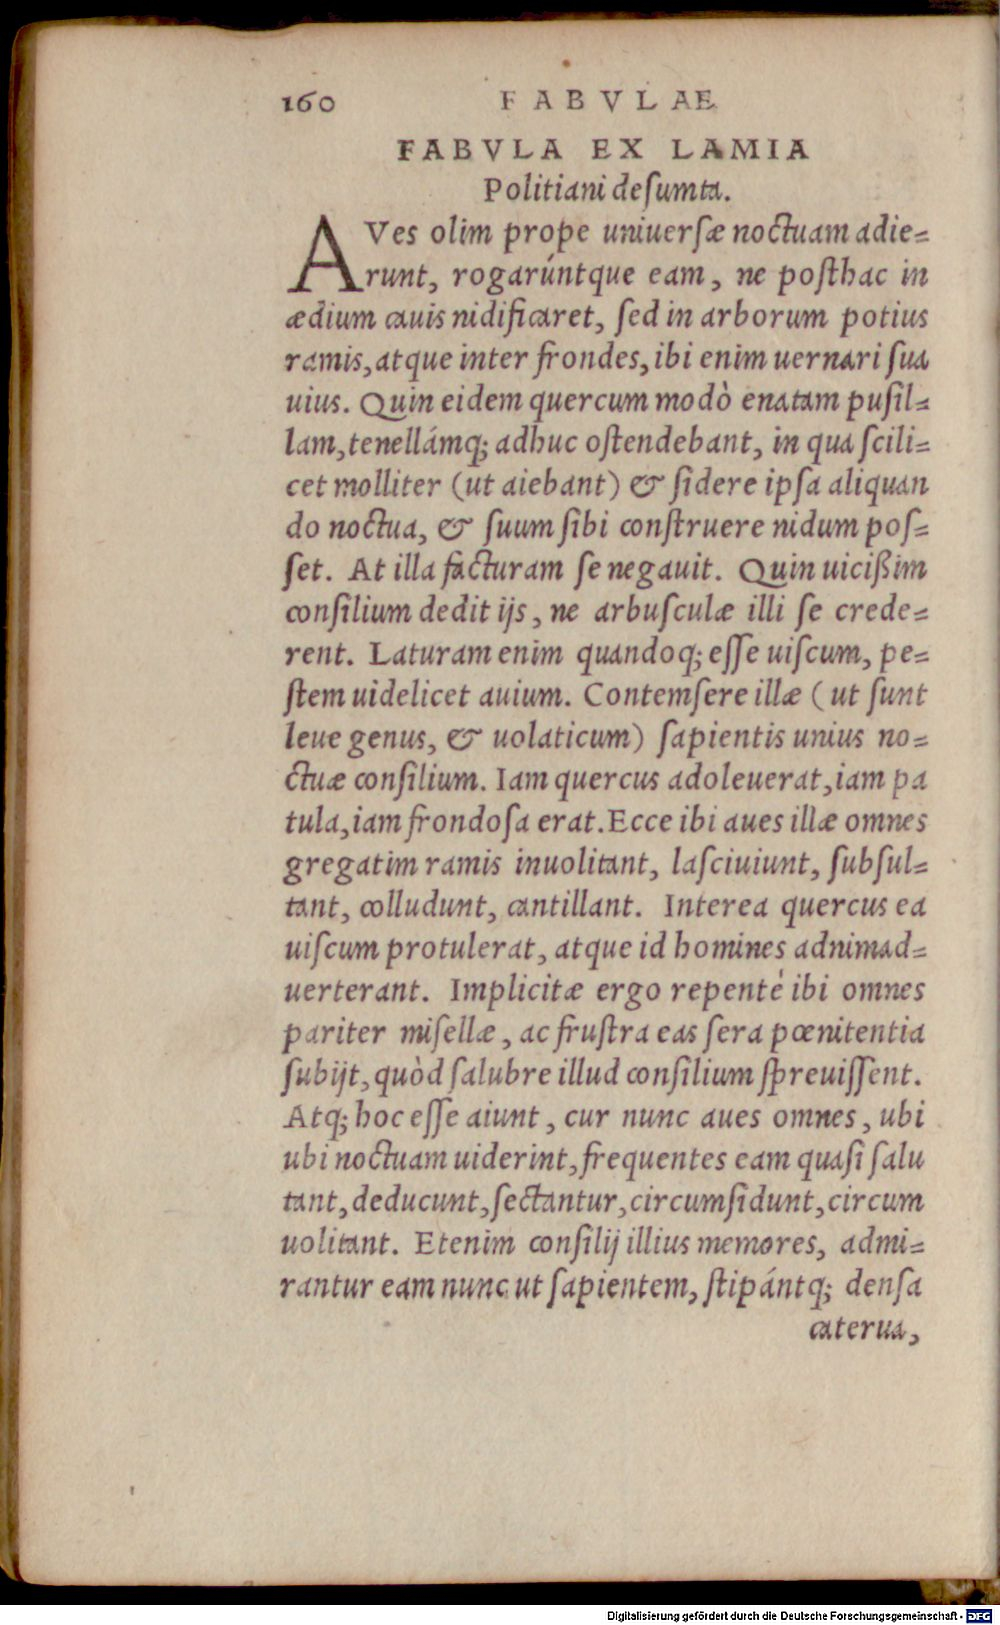 160 FABVLAE
FABVLA EX LAMIA
Politiani desumta.
AVes olim prope uniuersæ noctuam adie=
runt, rogarúntque eam, ne posthac in
ædium cauis nidificaret, sed in arborum potius
ramis, atque inter frondes, ibi enim uernari sua
uius. Quin eidem quercum modò enatam pusil=
lam, tenellámq; adhuc ostendebant, in qua scili=
cet molliter (ut aiebant) & sidere ipsa aliquan
do noctua, & suum sibi construere nidum pos=
set. At illa facturam se negauit. Quin uicißim
consilium dedit ijs, ne arbusculæ illi se crede=
rent. Laturam enim quandoq; esse uiscum, pe=
stem uidelicet auium. Contemsere illæ (ut sunt
leue genus, & uolaticum) sapientis unius no=
ctuæ consilium. Iam quercus adoleuerat, iam pa
tula, iam frondosa erat. Ecce ibi aues illæ omnes
gregatim ramis inuolitant, lasciuiunt, subsul=
tant, colludunt, cantillant. Interea quercus ea
uiscum protulerat, atque id homines adnimad=
uerterant. Implicitæ ergo repentè ibi omnes
pariter misellæ, ac frustra eas sera pœnitentia
subijt, quòd salubre illud consilium spreuissent.
Atq; hoc esse aiunt, cur nunc aues omnes, ubi
ubi noctuam uiderint, frequentes eam quasi salu
tant, deducunt, sectantur, circumsidunt, circum
uolitant. Etenim consilij illius memores, admi=
rantur eam nunc ut sapientem, stipántq; densa
caterua,
Digitalisierung gefördert durch die Deutsche Forschungsgemeinschaft - DFG